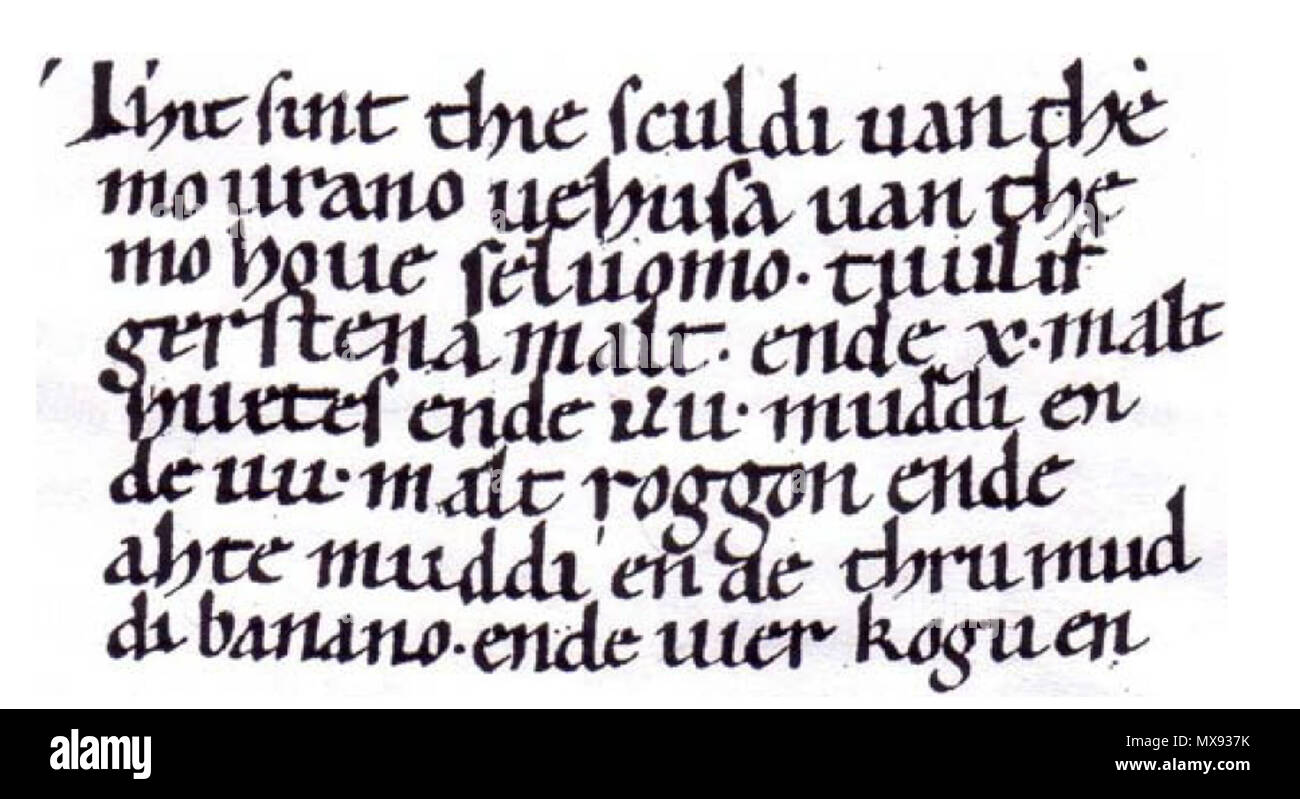 Thit sint thie sculdi uan the
mo urano uehusa uan the
mo houe seluomo. tuulif
gerstena malt. ende x. malt
huetes ende iiii. muddi en
de iiii. malt roggon ende
ahte muddi ende thru mud
di banano. ende uier kogii en
alamy
MX937K
www.alamy.com